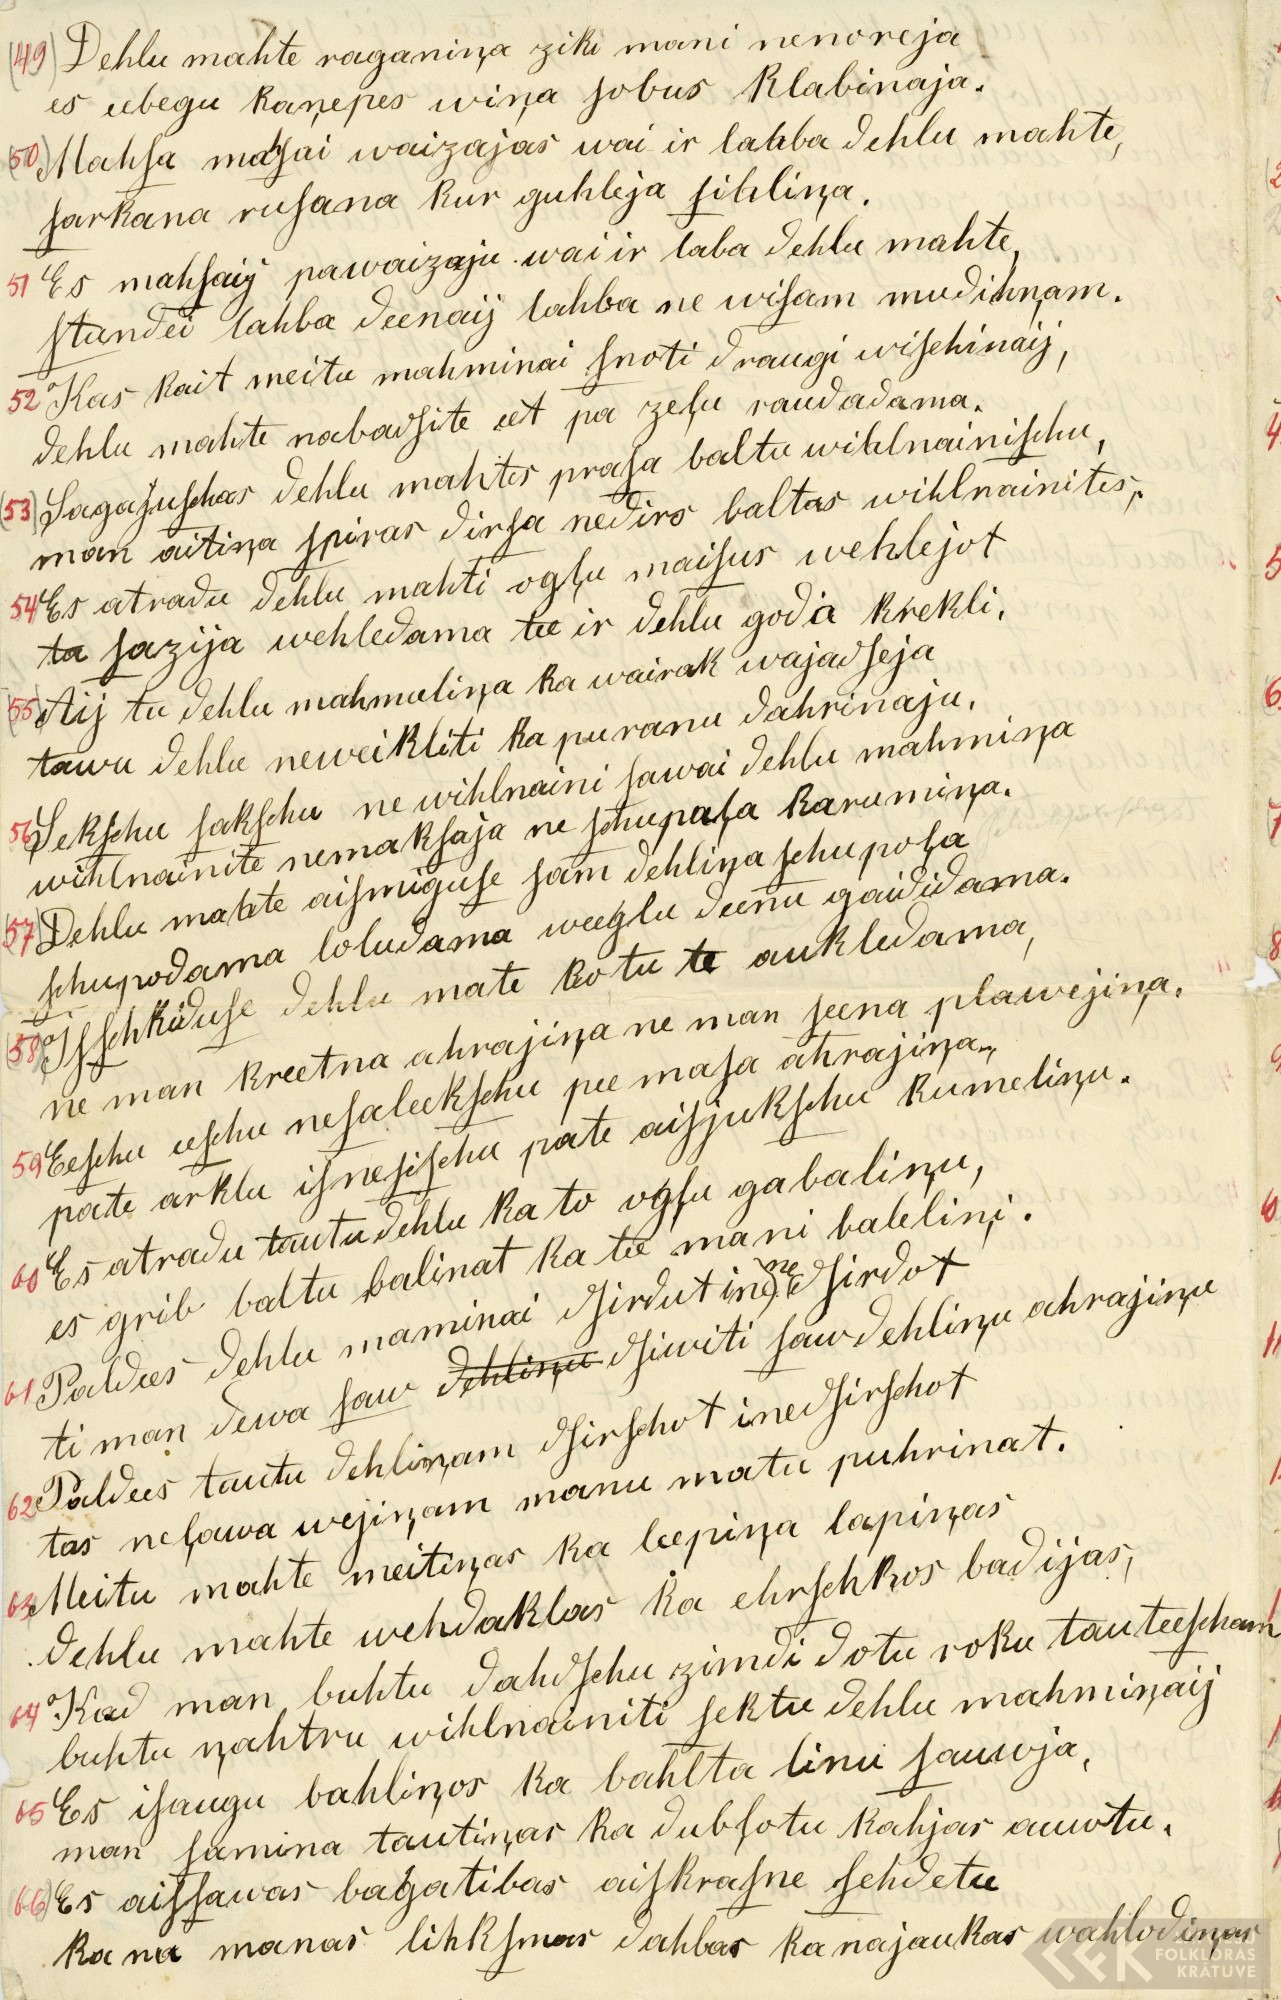 (49) Dehlu mahte raganiņa ziki mani nenoreja
es eebegu kaņepes wiņa sobus klabinaja.
(50) Mahsa mahsai waizajas wai ir lahba dehlu mahte,
sarkana rusana kur guhleja sihliņa.
51 Es mahsaij pawaizaju wai ir laba dehlu mahte,
stundei lahba deenaij lahba ne wisam mudihņam.
52 Kas kait meitu mahminai snoti draugi wischinaij,
dehlu mahte nabadsite eet pa zeļu raudadama.
(53) Sagajuschas dehlu mahtes prasa baltu wihlnainischu,
man aitiņa spiras dirsa nedirs baltas wihlnainites,
54 Es atradu dehlu mahti ogļu maisus wehlejot
ta sazija wehledama tee ir dehlu goda krekli.
(55) Aij tu dehlu mahmuliņa ka wairak wajadseja
tawu dehlu neweikliti ka puranu dahrinaju.
56 Sekschu sakschu ne wihlnaini sawai dehlu mahmiņa
wihlnainite nemaksaja ne schupaļa karumiņa.
(57) Dehlu mahte aismiguse sam dehliņa schupoļa
schupodama loludama weeglu deenu gaididama.
(58) Isschkiduse dehlu mate ko tu te aukledama,
ne man kreetna ahrajiņa ne man seena plawejiņa.
59 Eeschu eeschu nesaleekschu pee masa ahrajiņa,
pate arklu isnesischu pate aisjukschu kumeliņu.
60 Es atradu tautu dehlu ka to ogļu gabaliņu,
es grib baltu balinat ka tee mani baleliņi.
61 Paldees dehlu maminai dsirdut in ne dsirdot
ti man dewa saw dsiwiti saw dehliņu ahrajiņu
62 Paldees tautu dehliņam dsirschot inedsirschot
tas neļawa wejiņam manu matu puhrinat.
63 Meitu mahte meitiņas ka leepiņa lapiņas
dehlu mahte wehdaklas ka ehrschkos badijas,
64 Kad man buhtu dahdschu zimdi dotu roku tauteescham
buhtu ņahtru wihlnainiti sektu dehlu mahmiņaij
65 Es isaugu bahliņos ka bahlta linu sauwja,
man samina tautiņas ka dubļotu kahjas auwtu.
(66) Es aissawas bagatibas aiskrasne sehdetu
ka na manas lihksmas dahbas ka najaukas wahlodiņas
FOLKLORAS
KRĀTUVE